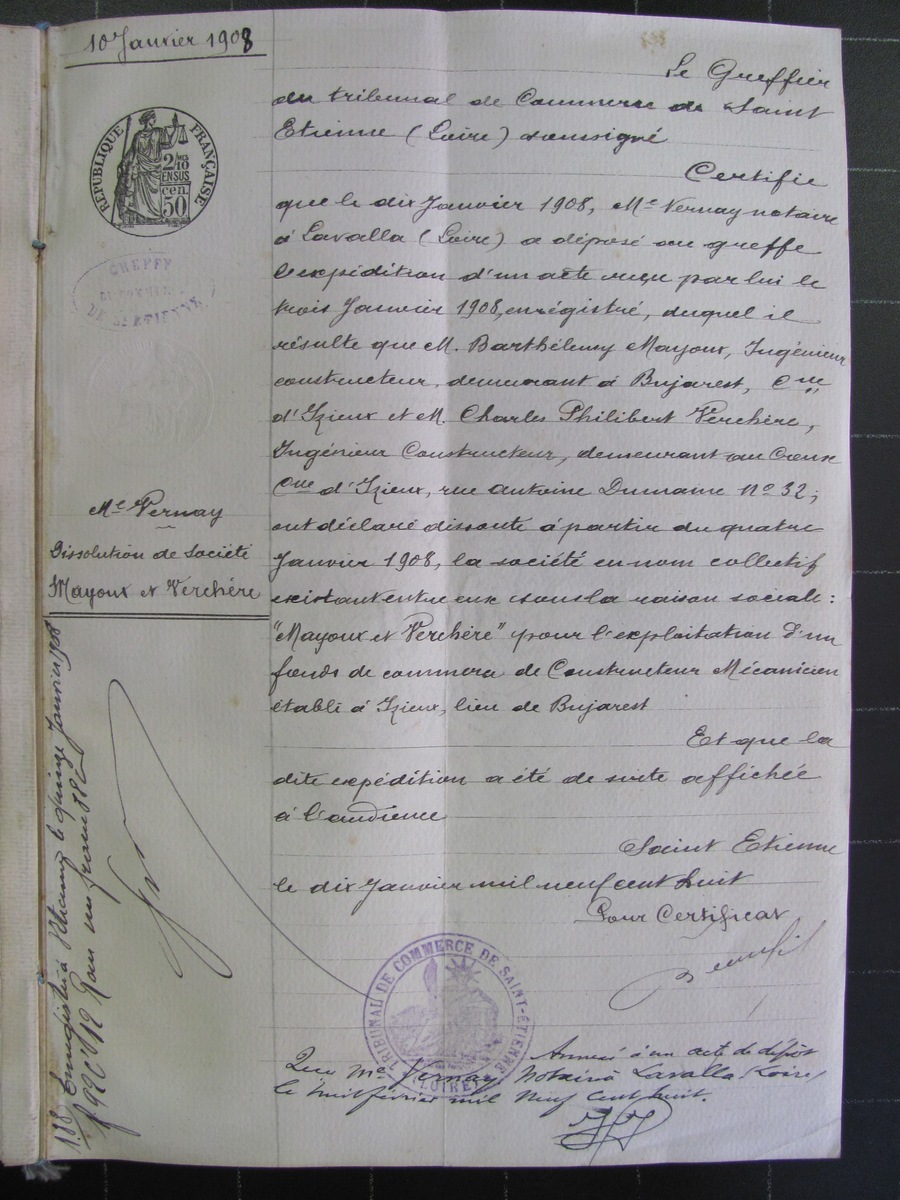 10 Janvier 1908
RÉPUBLIQUE FRANÇAISE
2/10
EN SUS
50
cen.
GREFFE
DE ST ETIENNE
Me Vernay
Dissolution de Société
Mayoux et Verchère
Le Greffier
du tribunal de Commerce de Saint
Etienne (Loire) soussigné
Certifie
que le dix Janvier 1908, Me Vernay notaire
à Lavalla (Loire) a déposé au greffe
l'expédition d'un acte reçu par lui le
trois Janvier 1908, enrégistré, duquel il
résulte que M. Barthélemy Mayoux, Ingénieur
constructeur, demeurant à Bujarest, Cne
d'Izieux et M. Charles Philibert Verchère,
Ingénieur Constructeur, demeurant au Creux
Cne d'Izieux, rue Antoine Dumaine No 32;
ont déclaré dissoute à partir du quatre
Janvier 1908, la société en nom collectif
existant entre eux sous la raison sociale:
"Mayoux et Verchère" pour l'exploitation d'un
fonds de commerce de Constructeur Mécanicien
établi à Izieux, lieu de Bujarest
Et que la
dite expédition a été de suite affichée
à l'audience
Saint Etienne
le dix Janvier mil neuf cent huit
Pour Certificat
TRIBUNAL DE COMMERCE DE SAINT-ETIENNE
(LOIRE)
Annexé à un acte de dépôt
reçu Me Vernay, Notaire à Lavalla (Loire)
le huit février mil neuf cent huit.
Enregistré à St Etienne le quinze Janvier 1908